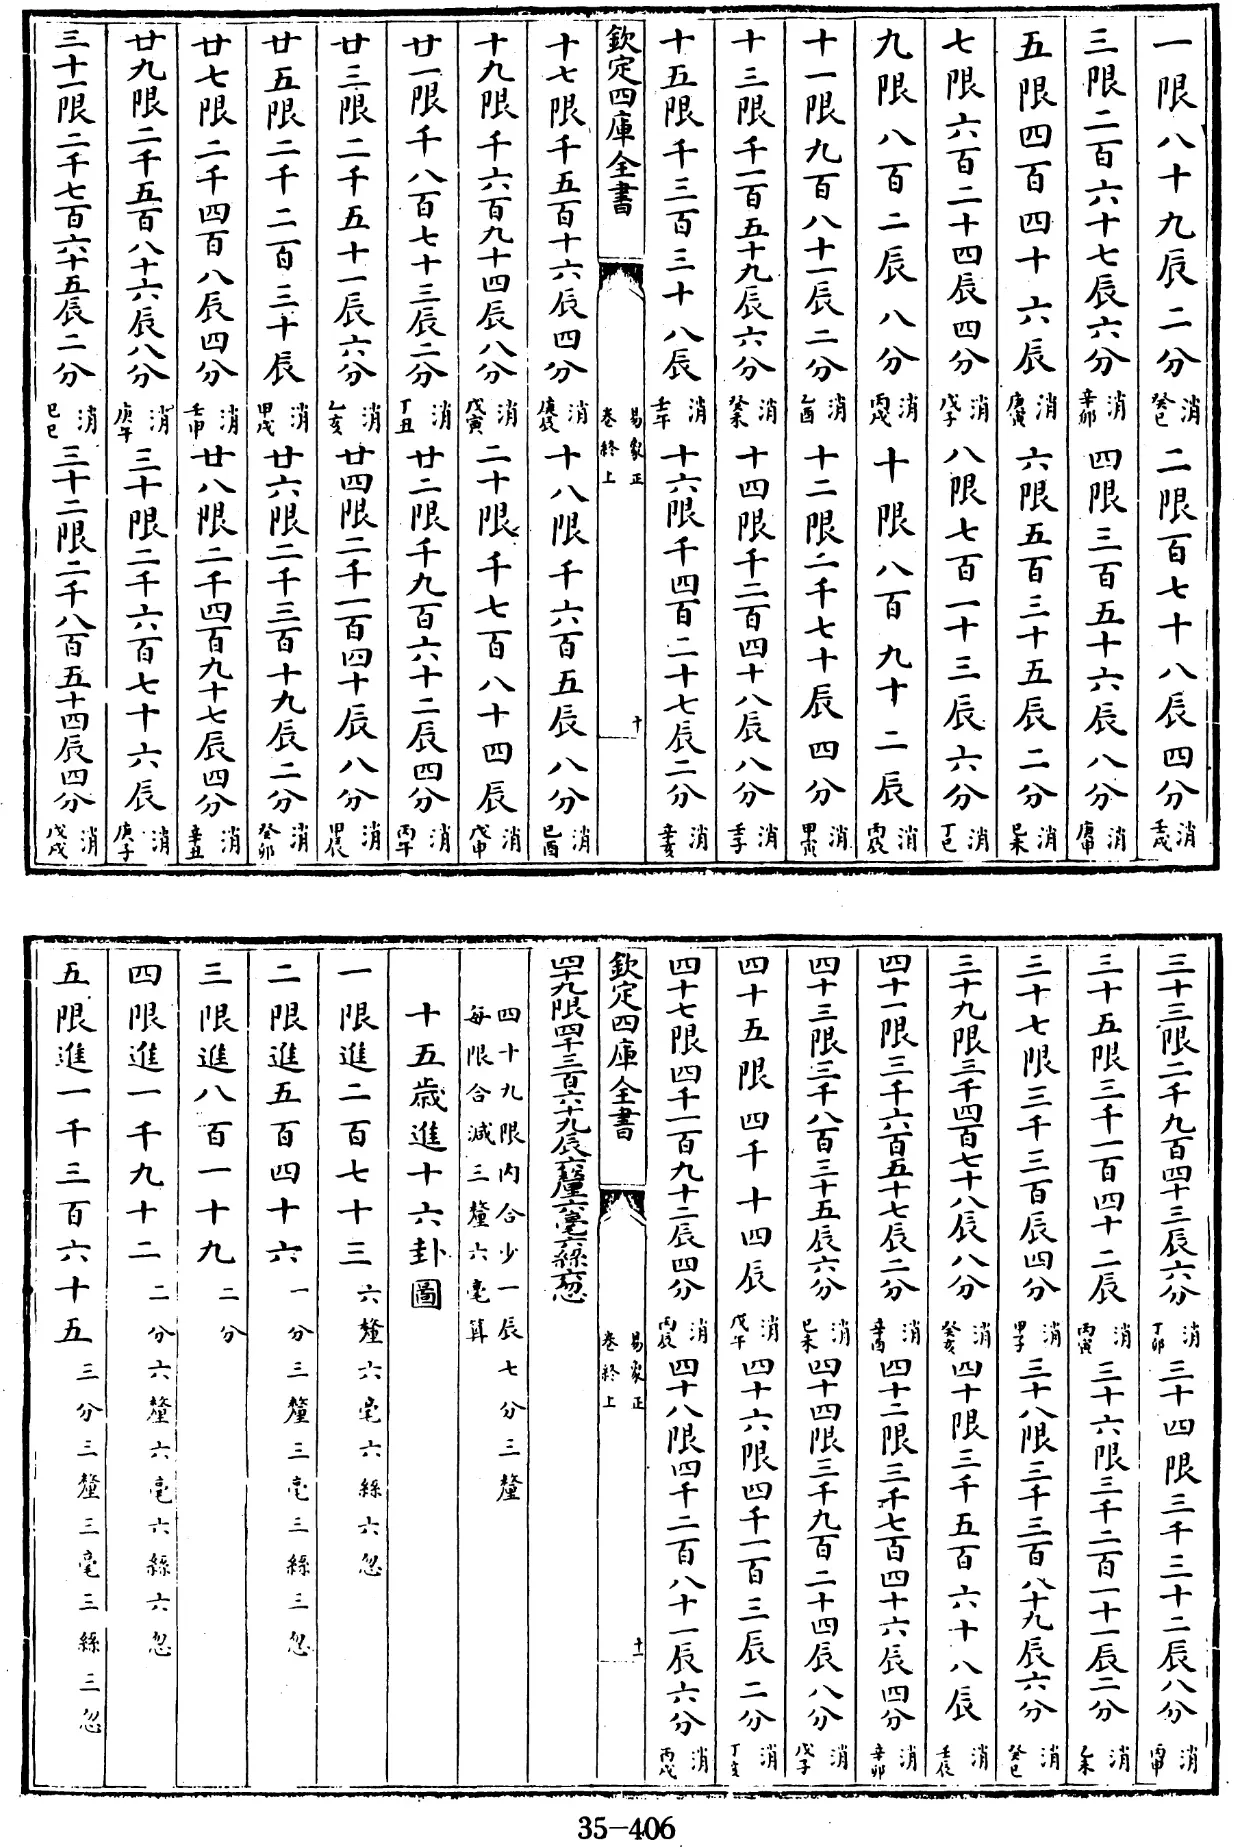 一限八十九辰二分消癸巳二限百七十八辰四分消壬戌
三限二百六十七辰六分消辛卯四限三百五十六辰八分消庚申
五限四百四十六辰消庚寅六限五百三十五辰二分消己未
七限六百二十四辰四分消戊子八限七百一十三辰六分消丁巳
九限八百二辰八分消丙戌十限八百九十二辰消丙辰
十一限九百八十一辰二分消乙酉十二限二千七十辰四分消甲寅
十三限千一百五十九辰六分消癸未十四限千二百四十八辰八分消壬子
十五限千三百三十八辰消壬午十六限千四百二十七辰二分消辛亥
欽定四庫全書
易象正
卷終上
十
十七限千五百十六辰四分消庚辰十八限千六百五辰八分消己酉
十九限千六百九十四辰八分消戊寅二十限千七百八十四辰消戊申
廿一限千八百七十三辰二分消丁丑廿二限千九百六十二辰四分消丙午
廿三限二千五十一辰六分消乙亥廿四限二千一百四十辰八分消甲辰
廿五限二千二百三十辰消甲戌廿六限二千三百十九辰二分消癸卯
廿七限二千四百八辰四分消壬申廿八限二千四百九十七辰四分消辛丑
廿九限二千五百八十六辰八分消庚午三十限二千六百七十六辰消庚子
三十一限二千七百六十五辰二分消己巳三十二限二千八百五十四辰四分消戊戌
三十三限二千九百四十三辰六分消丁卯三十四限三千三十二辰八分消丙申
三十五限三千一百四十二辰消丙寅三十六限三千二百一十一辰二分消乙未
三十七限三千三百辰四分消甲子三十八限三千三百八十九辰六分消癸巳
三十九限三千四百七十八辰八分消癸亥四十限三千五百六十八辰消壬辰
四十一限三千六百五十七辰二分消辛酉四十二限三千七百四十六辰四分消辛卯
四十三限三千八百三十五辰六分消己未四十四限三千九百二十四辰八分消戊子
四十五限四千十四辰消戊午四十六限四千一百三辰二分消丁亥
四十七限四千一百九十二辰四分消丙辰四十八限四千二百八十一辰六分消丙戌
欽定四庫全書
易象正
卷終上
十一
四十九限四千三百六十九辰六釐六毫六絲六忽
四十九限内合少一辰七分三釐
每限合減三釐六毫算
十五歲進十六卦圖
一限進二百七十三六釐六毫六絲六忽
二限進五百四十六一分三釐三毫三絲三忽
三限進八百一十九二分
四限進一千九十二二分六釐六毫六絲六忽
五限進一千三百六十五三分三釐三毫三絲三忽
35-406